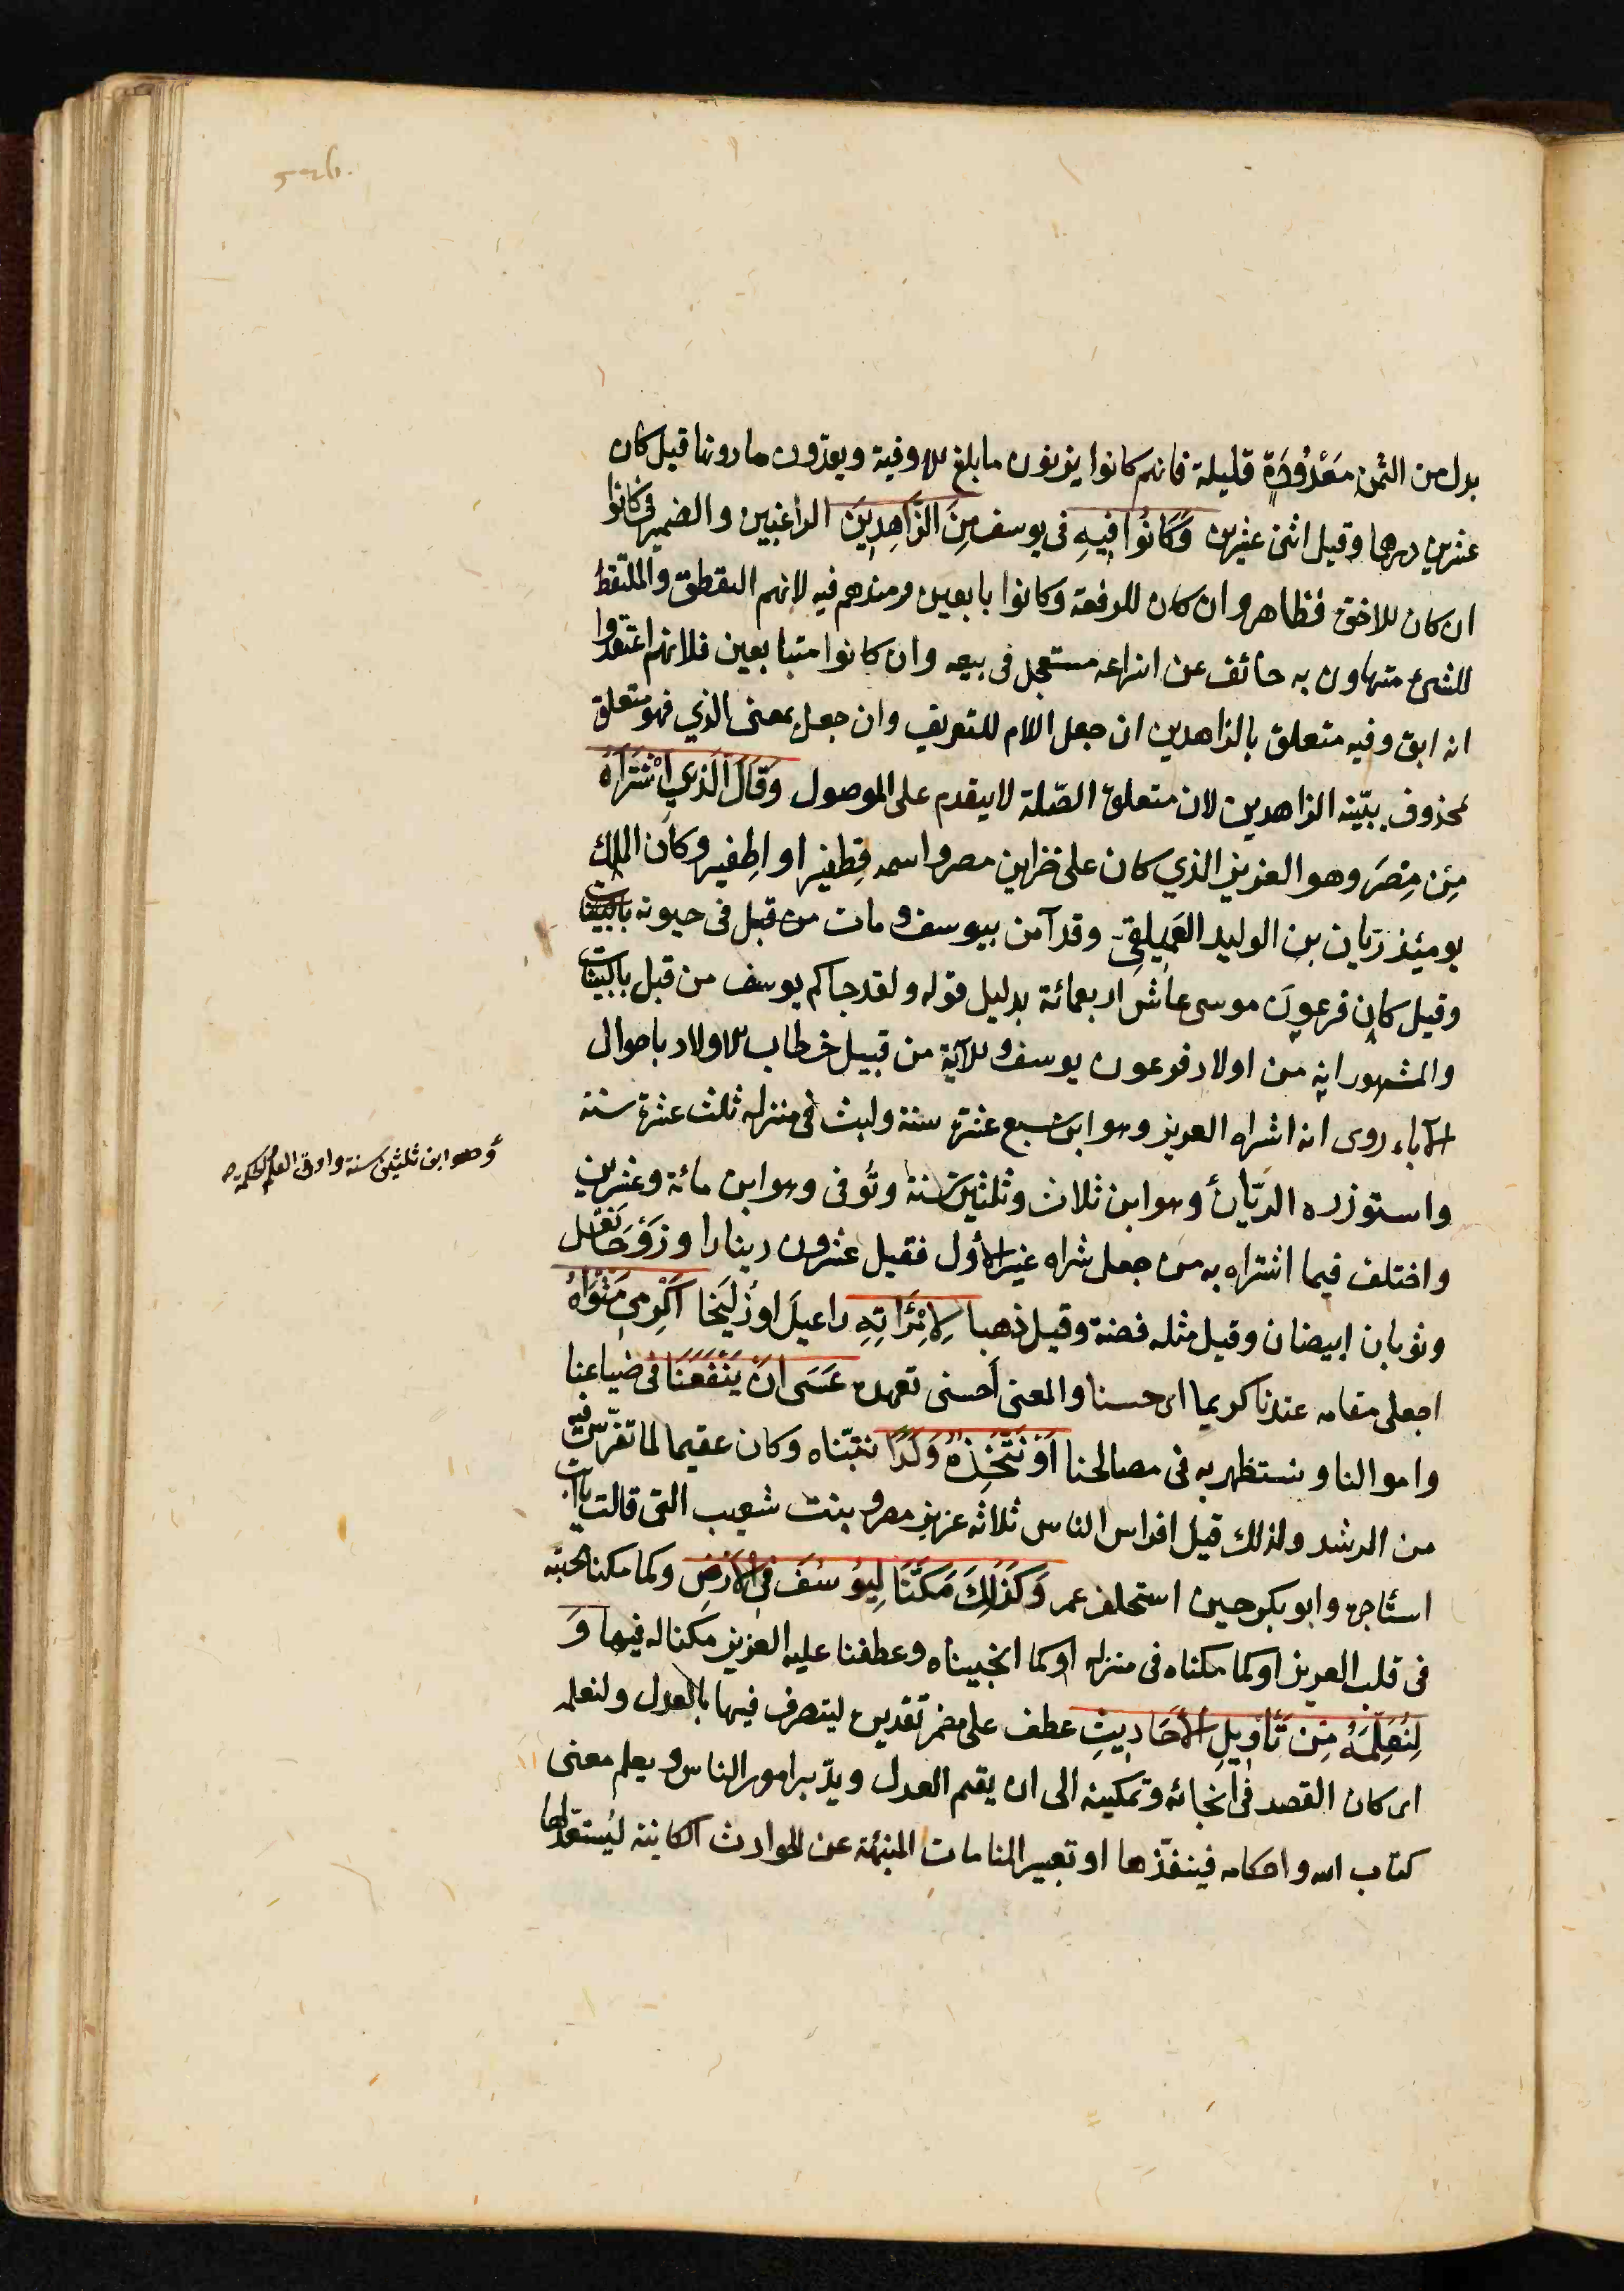 526.
بدل من الثمن مَعْدُودَةٍ قليلة فانهم كانوا يزنون ما بلغ الاوقية ويعدّون ما دونها قيل كان
عشرين درهما وقيل اثنى عشرين وَكَانُوا فِيهِ فى يوسف مِنَ الزَّاهِدِينَ الراغبين والضمير فى كانوا
ان كان للاخوة فظاهر وان كان للرفقة وكانوا بايعين فزهدهم فيه لانهم التقطوه والملتقط
للشىء متهاون به خائف عن انتزاعه مستعجل فى بيعه وان كانوا متبايعين فلانهم اعتقدوا
انه ابق وفيه متعلق بالزاهدين ان جعل اللام للتعريف وان جعل بمعنى الذي فهو متعلق
بمحذوف يبيّنه الزاهدين لان متعلق الصّلة لا يتقدم على الموصول وَقَالَ الَّذِي اشْتَرَاهُ
مِنْ مِصْرَ وهو العزيز الذي كان على خزاين مصر واسمه قِطفير او اِطفير وكان الملك
يومئذ ريّان بن الوليد العَمِيلقى وقد آمن بيوسف ومات من قبل فى حيوته بالبينات
وقيل كان فرعون موسى عاش اربعمائة بدليل قوله ولقد جاكم يوسف من قبل بالبينات
والمشهور انه من اولاد فرعون يوسف والآية من قبيل خطاب الاولاد باحوال
الآباء روى انه اشتراه العزيز وهو ابن سبع عشرة سنة ولبث فى منزله ثلث عشرة سنة
واستوزره الريّان وهو ابن ثلاث وثلثين سنة وتُوفى وهو ابن مائة وعشرين
وهو ابن ثلثين سنة واوتى العلم والحكمة صح
واختلف فيما اشتراه به من جعل شراه غير الأول فقيل عشرون دينارا وزَوْجَا نَعْل
وثوبان ابيضان وقيل مثله فضة وقيل ذهبا لِامْرَاَتِهِ راعيل او زُلَيْخا اَكْرِمِي مَثْوَاهُ
اجعلى مقامه عندنا كريما اى حسنا والمعنى اَحسنى تعهده عَسَى اَنْ يَنْفَعَنَا فى ضياعنا
واموالنا ونستظهر به فى مصالحنا اَوْ نَتَّخِذَهُ وَلَدًا نتبنّاه وكان عقيما لما تفرّس فيه
من الرشد ولذلك قيل افرس الناس ثلاثه عزيز مصر وبنت شعيب التى قالت يا ابت
استأجره وابو بكر حين استخلف عمر وَكَذَلِكَ مَكَّنَّا لِيُوسُفَ فِي الْأَرْضِ وكما مكنا محبته
فى قلب العزيز او كما مكناه فى منزله او كما انجيناه وعطفنا عليه العزيز مكنا له فيها وَ
لِنُعَلِّمَهُ مِنْ تَأْوِيلِ الْأَحَادِيثِ عطف على مضمر تقديره ليتصرف فيها بالعدل ولنعلمه
اى كان القصد فى انجائه وتمكينه الى ان يقيم العدل ويدّبر امور الناس ويعلم معنى
كتاب الله واحكامه فينفّذها او تعبير المنامات المنبئة عن الحوادث الكاينة ليستعدّ لها